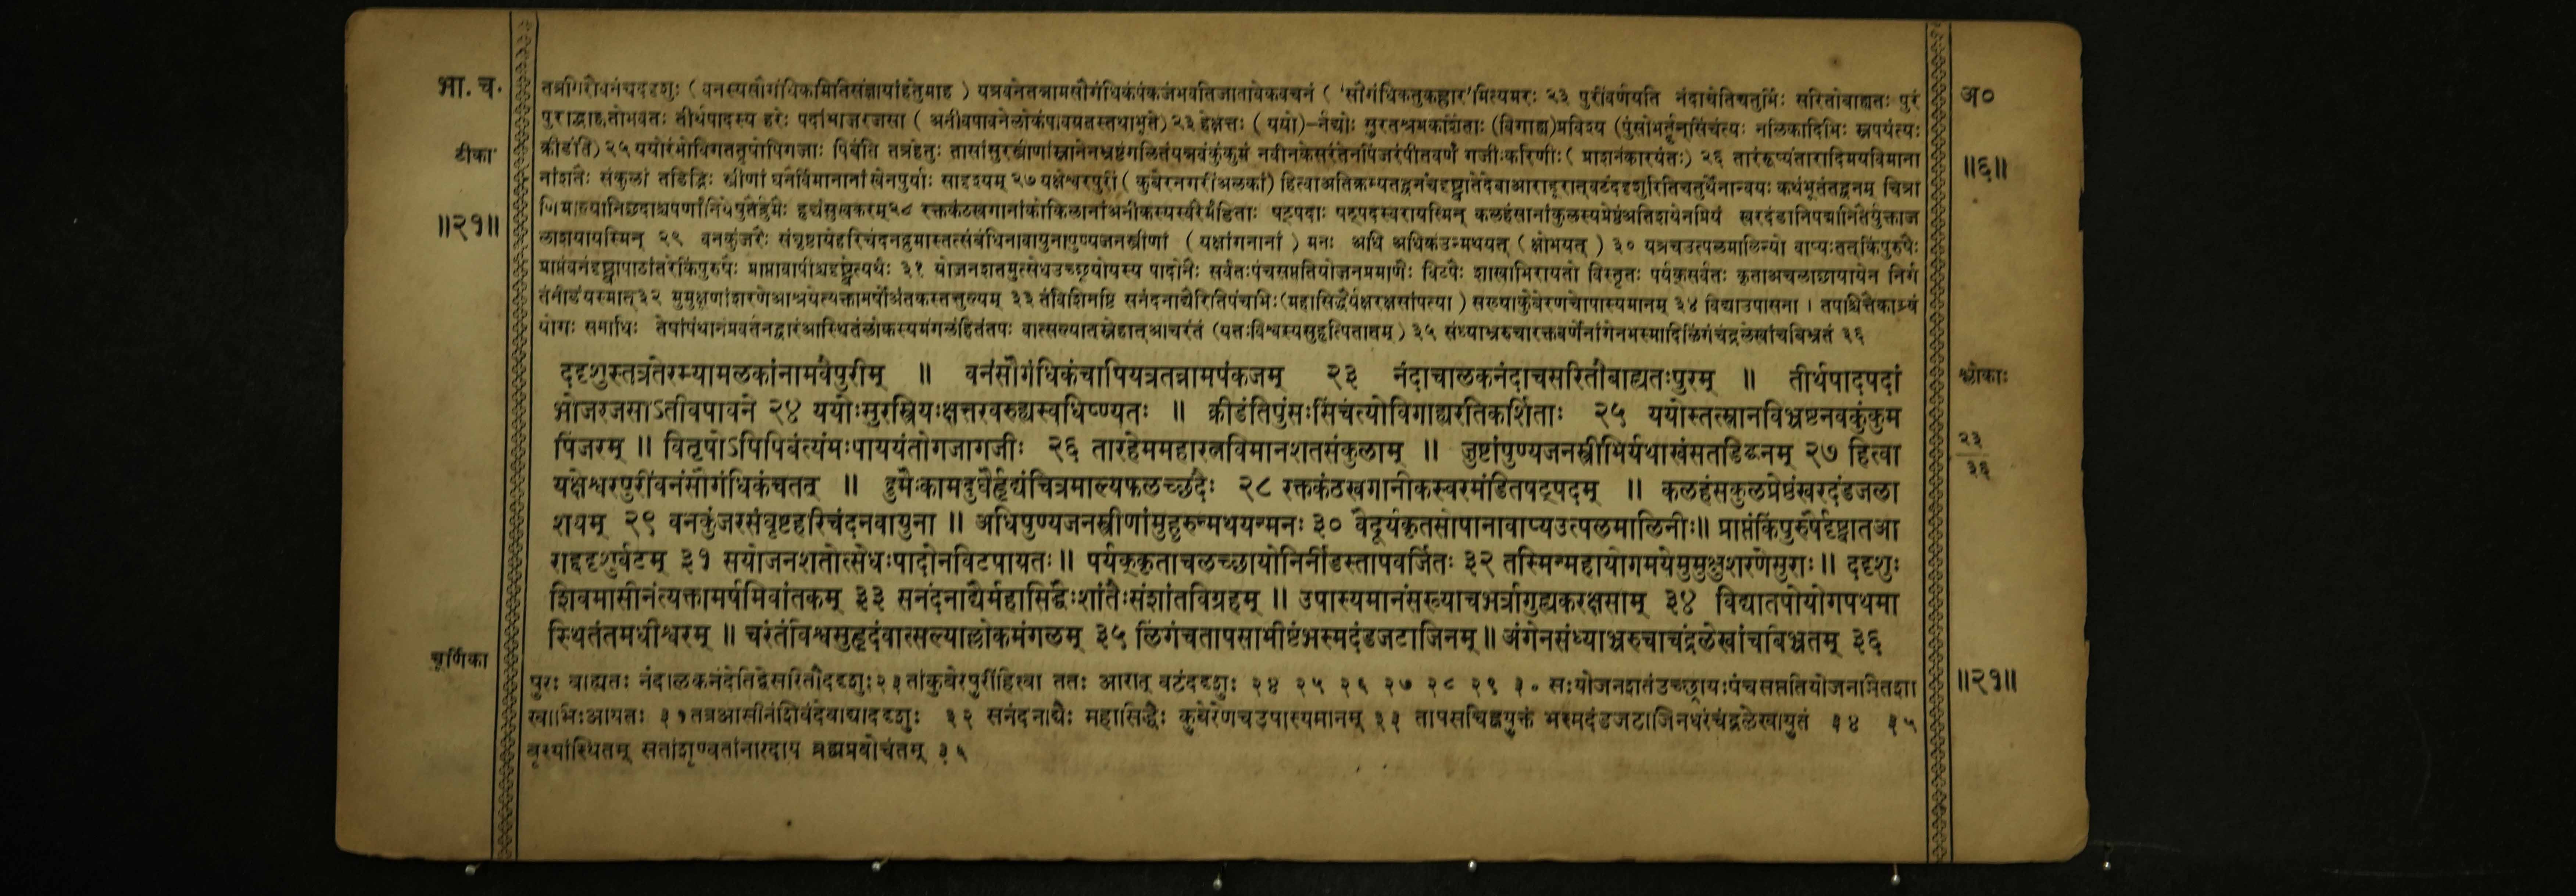 भा. च.
टीका
॥२१॥
चूर्णिका
तत्रगिरौवनंचददृशुः ( वनस्यसौगंधिकमितिसंज्ञायांहेतुमाह ) यत्रवनेतन्नामसौगंधिकंपंकजंभवतिजातावेकवचनं ( 'सौगंधिकंतुकह्लार'मित्यमरः २३ पुरींवर्णयति नंदाचेतिचतुर्भिः सरितौबाह्यतः पुरं
पुराद्बाह्यतोभवतः तीर्थपादस्य हरेः पदांभोजरजसा ( अतीवपावनेलोकंपावयतस्तथाभूते) २३ हेक्षत्तः ( ययो)-र्नद्योः सुरतश्रमकर्शिताः (विगाह्य)प्रविश्य (पुंसोभर्तॄन्सिंचंत्यः नलिकादिभिः स्नपयंत्यः
क्रीडंति) २५ ययोरंभोविगततृषोपिगजाः पिबंति तत्रहेतुः तासांसुरस्त्रीणांस्नानेनभ्रष्टंगलितंयन्नवंकुंकुमं नवीनकेसरंतेनपिंजरंपीतवर्णं गजीःकरिणीः( प्राशनंकारयंतः) २६ तारंरूप्यंतारादिमयविमाना
नांशतैः संकुलां तडिद्भिः स्त्रीणां घनैर्विमानानां खेनपुर्याः सादृश्यम् २७ यक्षेश्वरपुरीं ( कुबेरनगरींअलकां) हित्वाअतिक्रम्यतद्वनंचदृष्ट्वातेदेवाआराद्दूरात्वटंददृशुरितिचतुर्थेनान्वयः कथंभूतंतद्वनम् चित्रा
णिमाल्यानिछदाश्चपर्णानियेषुतैर्द्रुमैः हृद्यंसुखकरम्२८ रक्तकंठखगानांकोकिलानांअनीकस्यस्वरैर्मंडिताः षट्पदाः षट्पदस्वरायस्मिन् कलहंसानांकुलस्यप्रेष्ठंअतिशयेनप्रियं खरदंडानिपद्मानितैर्युक्ताज
लाशयायस्मिन् २९ वनकुंजरैः संघृष्टायेहरिचंदनद्रुमास्तत्संबंधिनावायुनापुण्यजनस्त्रीणां ( यक्षांगनानां ) मनः अधि अधिकंउन्मथयत् ( क्षोभयत् ) ३० यत्रचउत्पलमालिन्यो वाप्यःतत्किंपुरुषैः
प्राप्तंवनंदृष्ट्वापाठांतरेकिंपुरुषैः प्राप्तावापीश्चदृष्ट्वेत्यर्थः ३१ योजनशतमुत्सेधउच्छ्रयोयस्य पादोनैः सर्वतःपंचसप्ततियोजनप्रमाणैः विटपैः शाखाभिरायतो विस्तृतः पर्यक्सर्वतः कृताअचलाछायायेन निर्ग
तंनीडंयस्मात्३२ मुमुक्षूणांशरणेआश्रयेत्यक्तामर्षोअंतकस्तत्तुल्यम् ३३ तंविशिनष्टि सनंदनाद्यैरितिपंचभिः(महासिद्धैर्यक्षरक्षसांपत्या ) सख्याकुबेरेणचोपास्यमानम् ३४ विद्याउपासना । तपश्चित्तैकाग्र्यं
योगः समाधिः तेषांपंथानंप्रवर्तनद्वारंआस्थितंलोकस्यमंगलंहितंतपः वात्सल्यात्स्नेहात्आचरंतं (यतःविश्वस्यसुहृत्पितातम् ) ३५ संध्याभ्ररुचारक्तवर्णेनांगेनभस्मादिलिंगंचंद्रलेखांचबिभ्रतं ३६
ददृशुस्तत्रतेरम्यामलकांनामवैपुरीम् ॥ वनंसौगंधिकंचापियत्रतन्नामपंकजम् २३ नंदाचालकनंदाचसरितौबाह्यतःपुरम् ॥ तीर्थपादपदां
भोजरजसाऽतीवपावने २४ ययोःसुरस्त्रियःक्षत्तरवरुह्यस्वधिष्ण्यतः ॥ क्रीडंतिपुंसःसिंचंत्योविगाह्यरतिकर्शिताः २५ ययोस्तत्स्नानविभ्रष्टनवकुंकुम
पिंजरम् ॥ वितृषोऽपिपिबंत्यंभःपाययंतोगजागजीः २६ तारहेममहारत्नविमानशतसंकुलाम् ॥ जुष्टांपुण्यजनस्त्रीभिर्यथाखंसतडिद्घनम् २७ हित्वा
यक्षेश्वरपुरींवनंसौगंधिकंचतत् ॥ द्रुमैःकामदुघैर्हृद्यंचित्रमाल्यफलच्छदैः २८ रक्तकंठखगानीकस्वरमंडितषट्पदम् ॥ कलहंसकुलप्रेष्ठंखरदंडजला
शयम् २९ वनकुंजरसंघृष्टहरिचंदनवायुना ॥ अधिपुण्यजनस्त्रीणांमुहुरुन्मथयन्मनः ३० वैदूर्यकृतसोपानावाप्यउत्पलमालिनीः॥ प्राप्तंकिंपुरुषैर्दृष्ट्वातआ
राद्ददृशुर्वटम् ३१ सयोजनशतोत्सेधःपादोनविटपायतः॥ पर्यक्कृताचलच्छायोनिर्नीडस्तापवर्जितः ३२ तस्मिन्महायोगमयेमुमुक्षुशरणेसुराः॥ ददृशुः
शिवमासीनंत्यक्तामर्षमिवांतकम् ३३ सनंदनाद्यैर्महासिद्धैःशांतैःसंशांतविग्रहम् ॥ उपास्यमानंसख्याचभर्त्रागुह्यकरक्षसाम् ३४ विद्यातपोयोगपथमा
स्थितंतमधीश्वरम् ॥ चरंतंविश्वसुहृदंवात्सल्याल्लोकमंगलम् ३५ लिंगंचतापसाभीष्टंभस्मदंडजटाजिनम्॥ अंगेनसंध्याभ्ररुचाचंद्रलेखांचबिभ्रतम् ३६
पुरः बाह्यतः नंदालकनंदेतिद्वेसरितौददृशुः२३तांकुबेरपुरींहित्वा ततः आरात् वटंददृशुः २४ २५ २६ २७ २८ २९ ३० सःयोजनशतंउच्छ्रायःपंचसप्ततियोजनामितशा
खाभिःआयतः ३१तत्रआसीनंशिवंदेवाद्याददृशुः ३२ सनंदनाद्यैः महासिद्धैः कुबेरेणचउपास्यमानम् ३३ तापसचिह्नयुक्तं भस्मदंडजटाजिनधरंचंद्रलेखायुतं ३४ ३५
बृस्यांस्थितम् सतांशृण्वतांनारदाय ब्रह्मप्रवोचंतम् ३५
अ०
॥६॥
श्लोकाः
२३
३६
॥२१॥